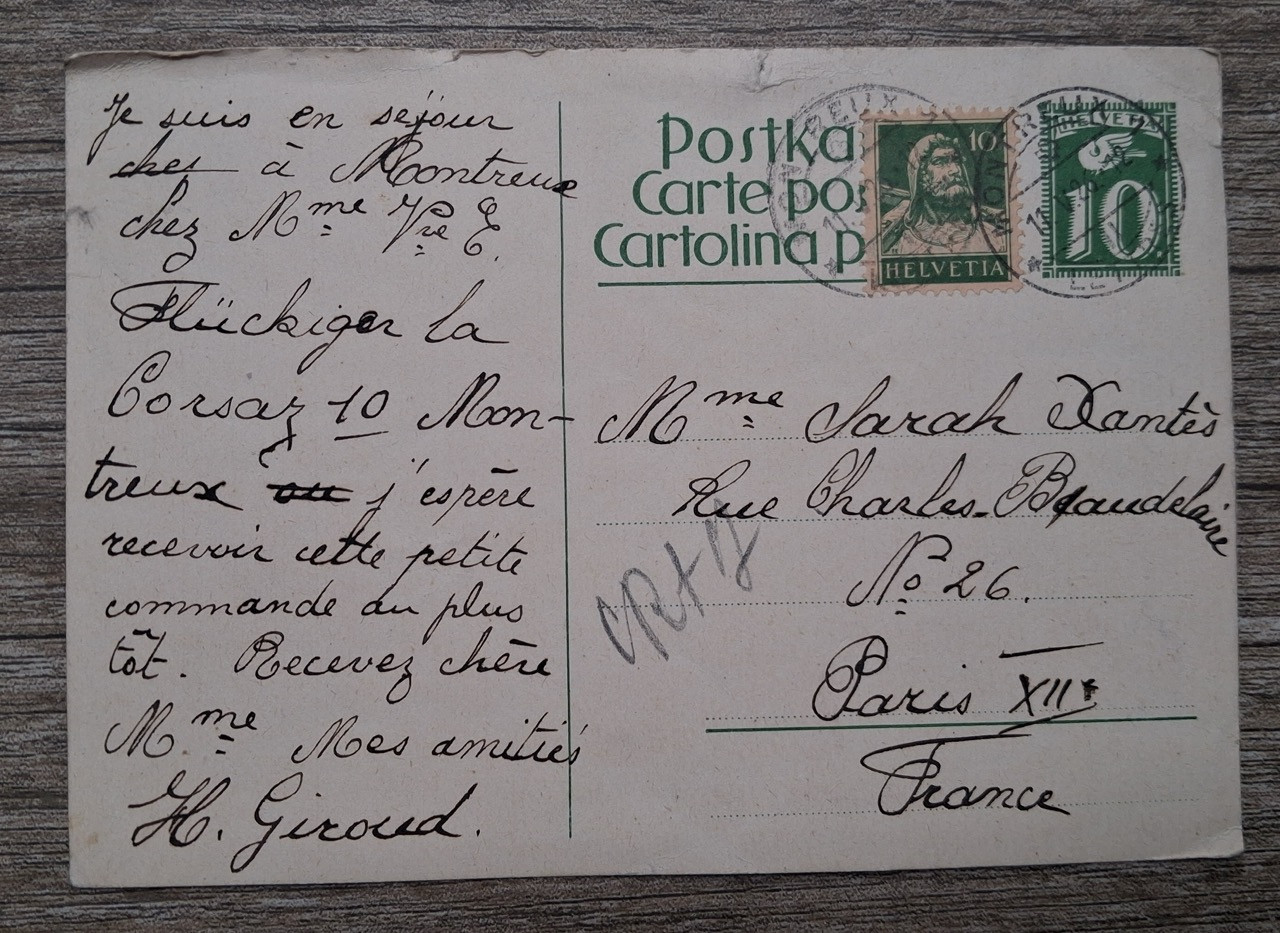 Je suis en séjour
ches à Montreux
chez Mme Vve E.
Flückiger la
Corsaz 10 Mon-
treux ou j'espère
recevoir cette petite
commande au plus
tôt. Recevez chère
Mme Mes amitiés
H. Giroud.
Postka
Carte pos
Cartolina p
10
HELVETIA
HELVETIA
10
MONTREUX
Mme Sarah Xantès
Rue Charles-Beaudelaire
No 26.
Paris XIIe
France